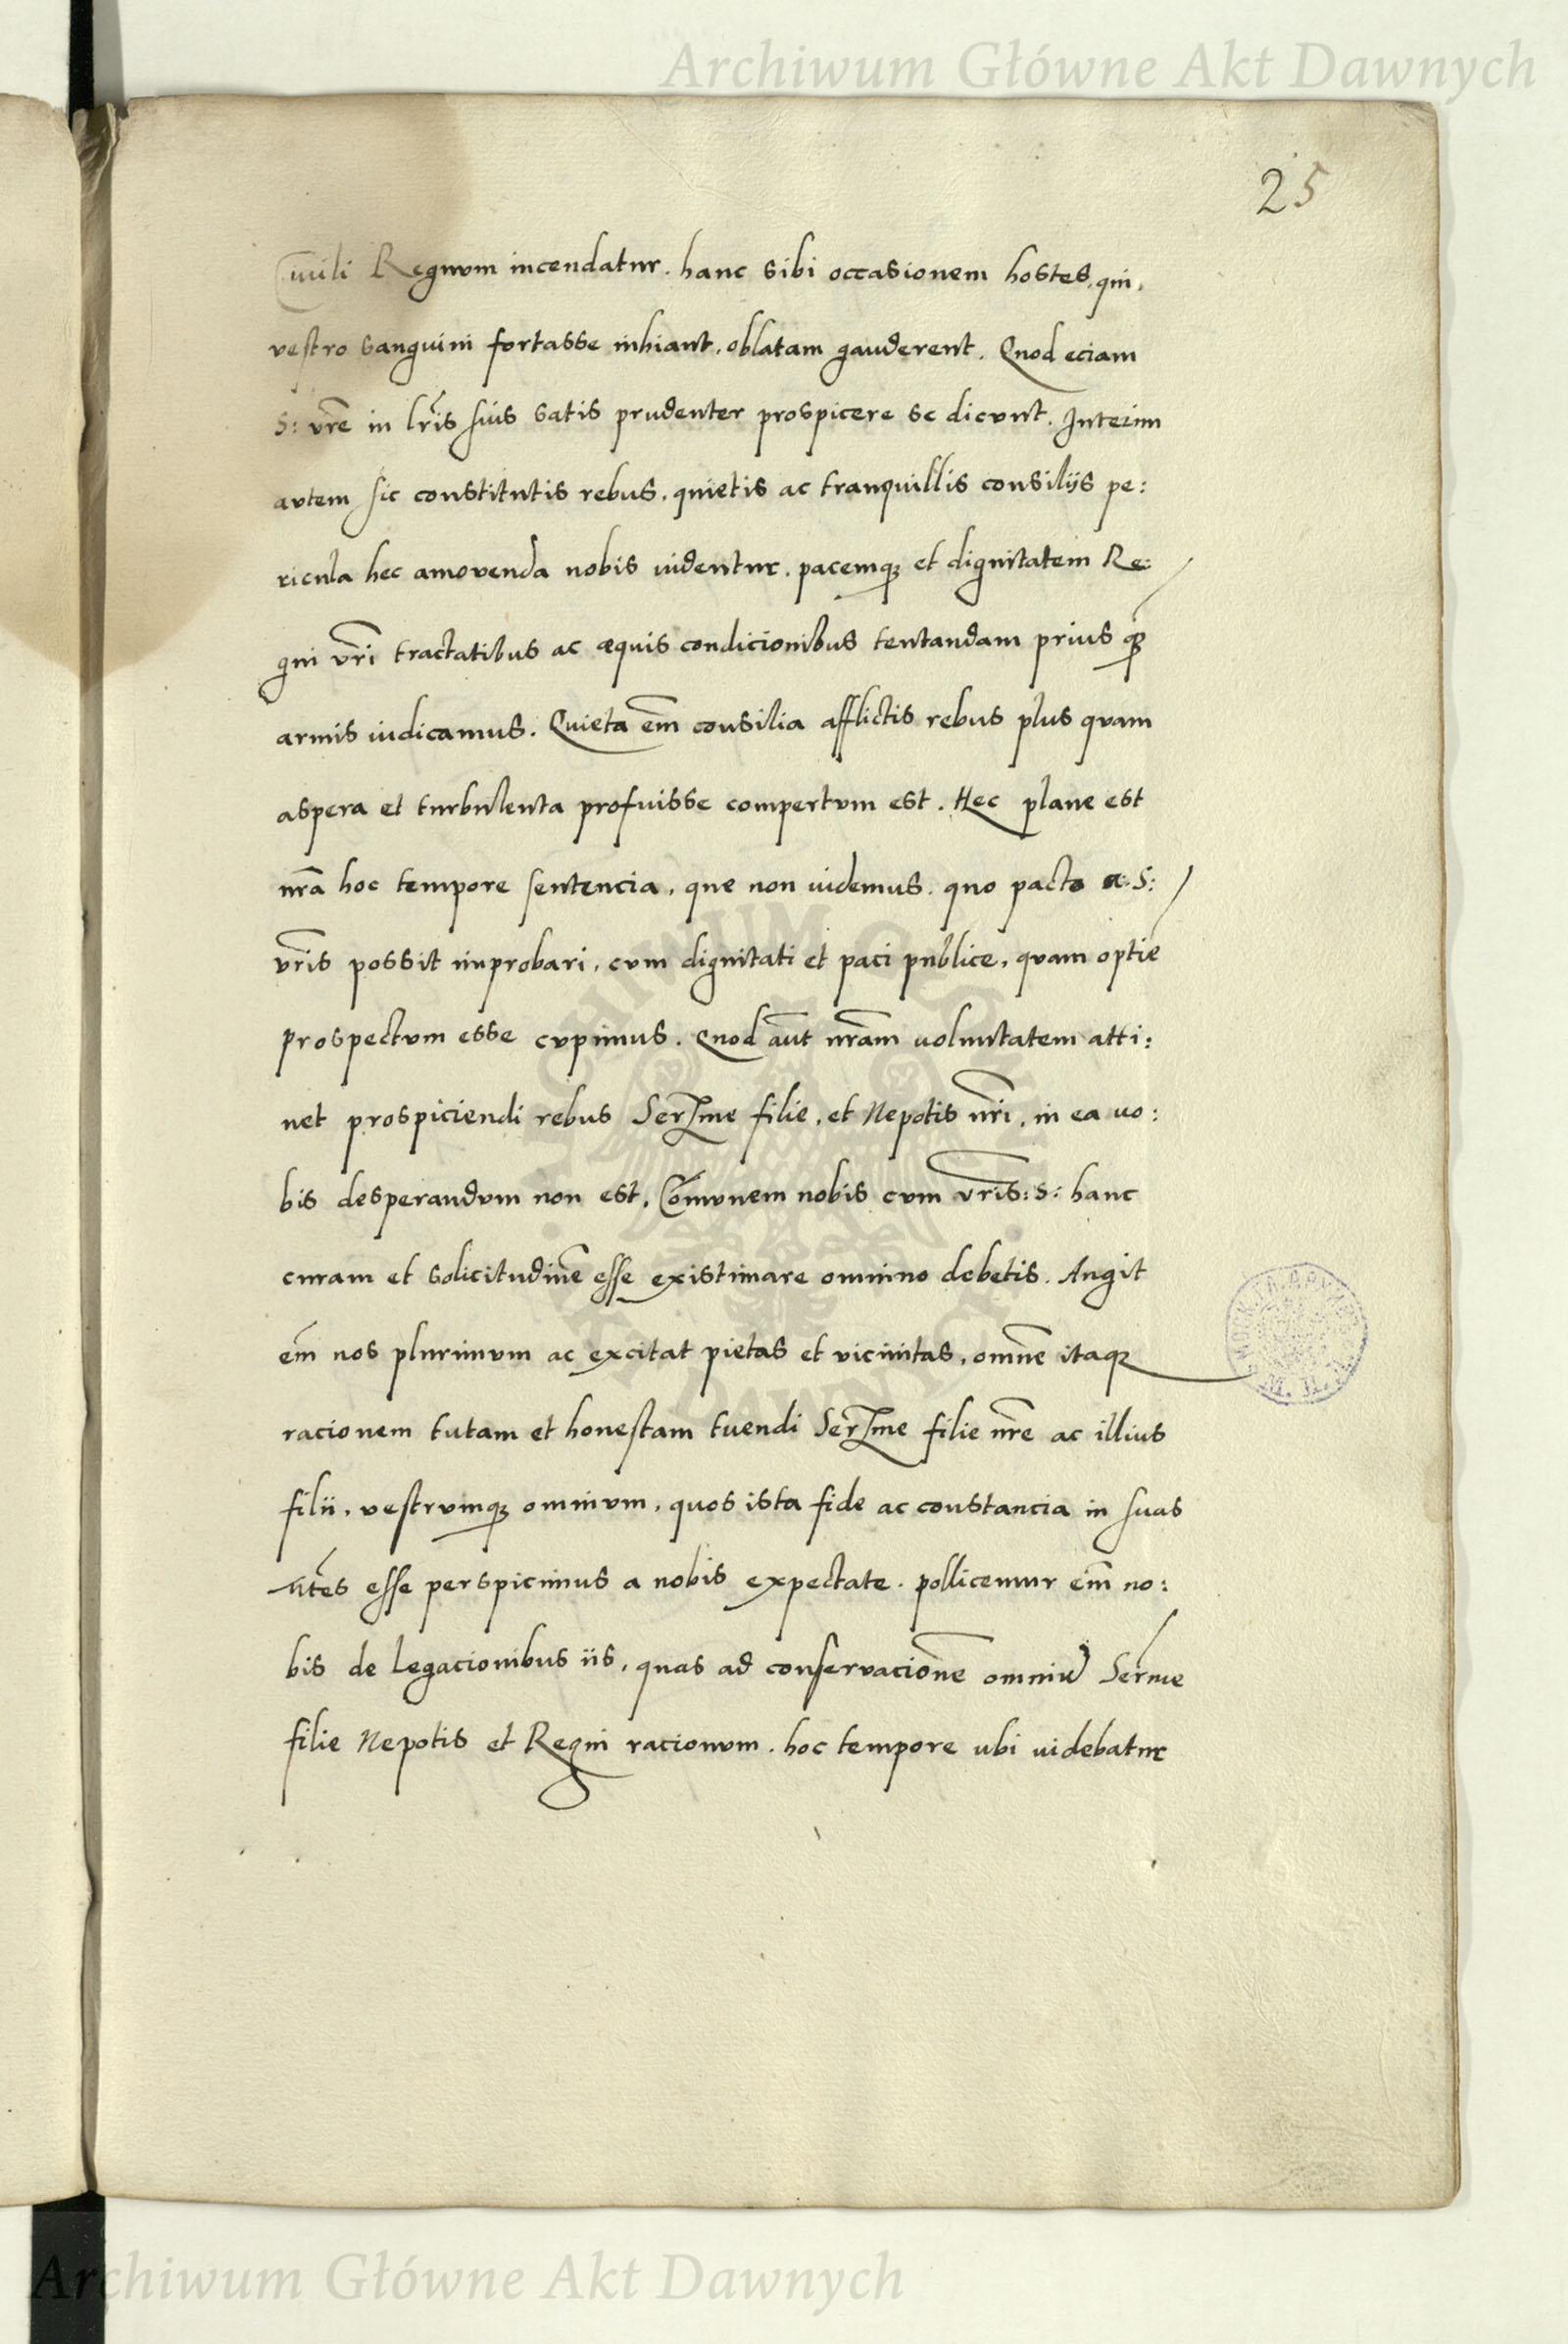 Archiwum Główne Akt Dawnych
25
Ciuili Regnum incendatur. hanc sibi occasionem hostes, qui,
vestro sanguini fortasse inhiant, oblatam gauderent. Quod eciam
S: vr̃e in lr̃is suis satis prudenter prospicere se dicunt. Interim
autem sic constitutis rebus, quietis ac tranquillis consilijs pe:
ricula hec amovenda nobis uidentur. pacemq; et dignitatem Re:
gni vr̃i tractatibus ac æquis condicionibus tentandam prius q̃
armis iudicamus. Quieta em̃ consilia afflictis rebus plus quam
aspera et turbulenta profuisse compertum est. Hec plane est
nr̃a hoc tempore sentencia, que non uidemus. quo pacto a S:
vr̃is possit improbari, cum dignitati et paci publice, quam optie
prospectum esse cupimus. Quod aũt nr̃am uoluntatem atti:
net prospiciendi rebus Serme filie, et Nepotis nr̃i, in ea uo:
bis desperandum non est, Com̃unem nobis cum vr̃is: S: hanc
curam et solicitudinẽ esse existimare omnino debetis. Angit
em̃ nos plurimum ac excitat pietas et vicinitas, omnẽ itaq;
racionem tutam et honestam tuendi Serme filie nr̃e ac illius
filii, vestrumq; omnium, quos ista fide ac constancia in suas
esse perspicimus a nobis expectate. pollicemur em̃ no:
bis de legacionibus iis, quas ad conservacionẽ omniũ Serme
filie Nepotis et Regni racionum. hoc tempore ubi uidebatur
Archiwum Główne Akt Dawnych